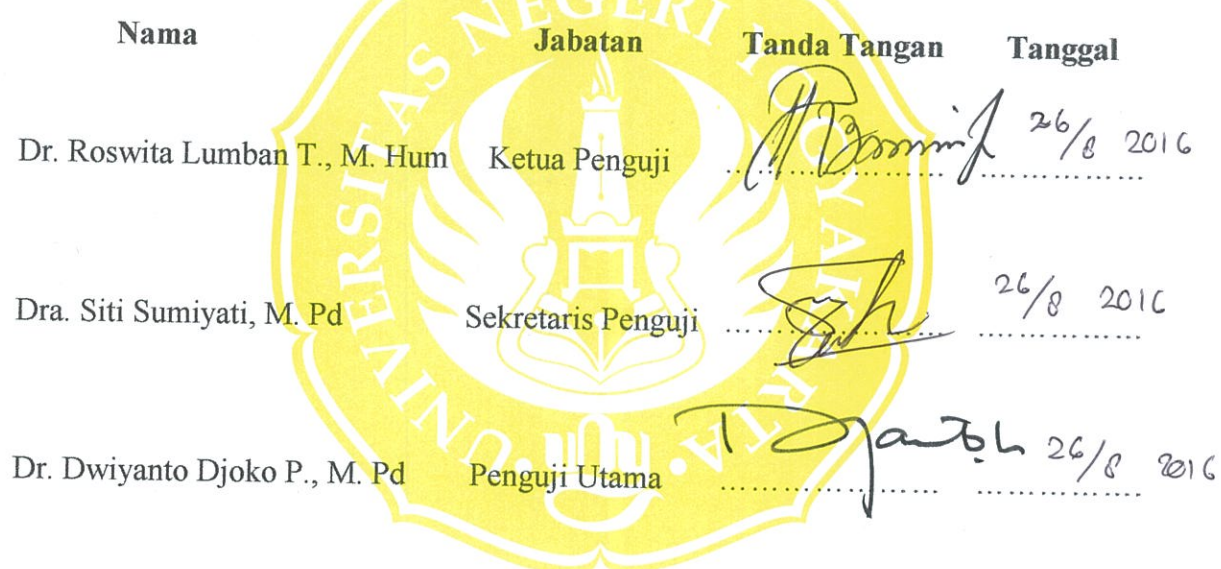 Nama Jabatan Tanda Tangan Tanggal
Dr. Roswita Lumban T., M. Hum Ketua Penguji 26/8 2016
Dra. Siti Sumiyati, M. Pd Sekretaris Penguji 26/8 2016
Dr. Dwiyanto Djoko P., M. Pd Penguji Utama 26/8 2016
UNIVERSITAS NEGERI YOGYAKARTA